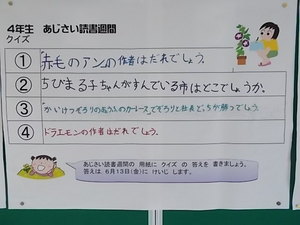 4年生 あじさい読書週間
クイズ
① 「赤毛のアン」の作者はだれでしょう。
② ちびまる子ちゃんがすんでいる市はどこでしょうか。
③ 「かいけつゾロリのきょうふのカーレース」でゾロリと社長どっちが勝つでしょう。
④ ドラえモンの作者はだれでしょう。
あじさい読書週間の 用紙に クイズ の 答えを 書きましょう。
答えは 6月13日(金)に けいじ します。